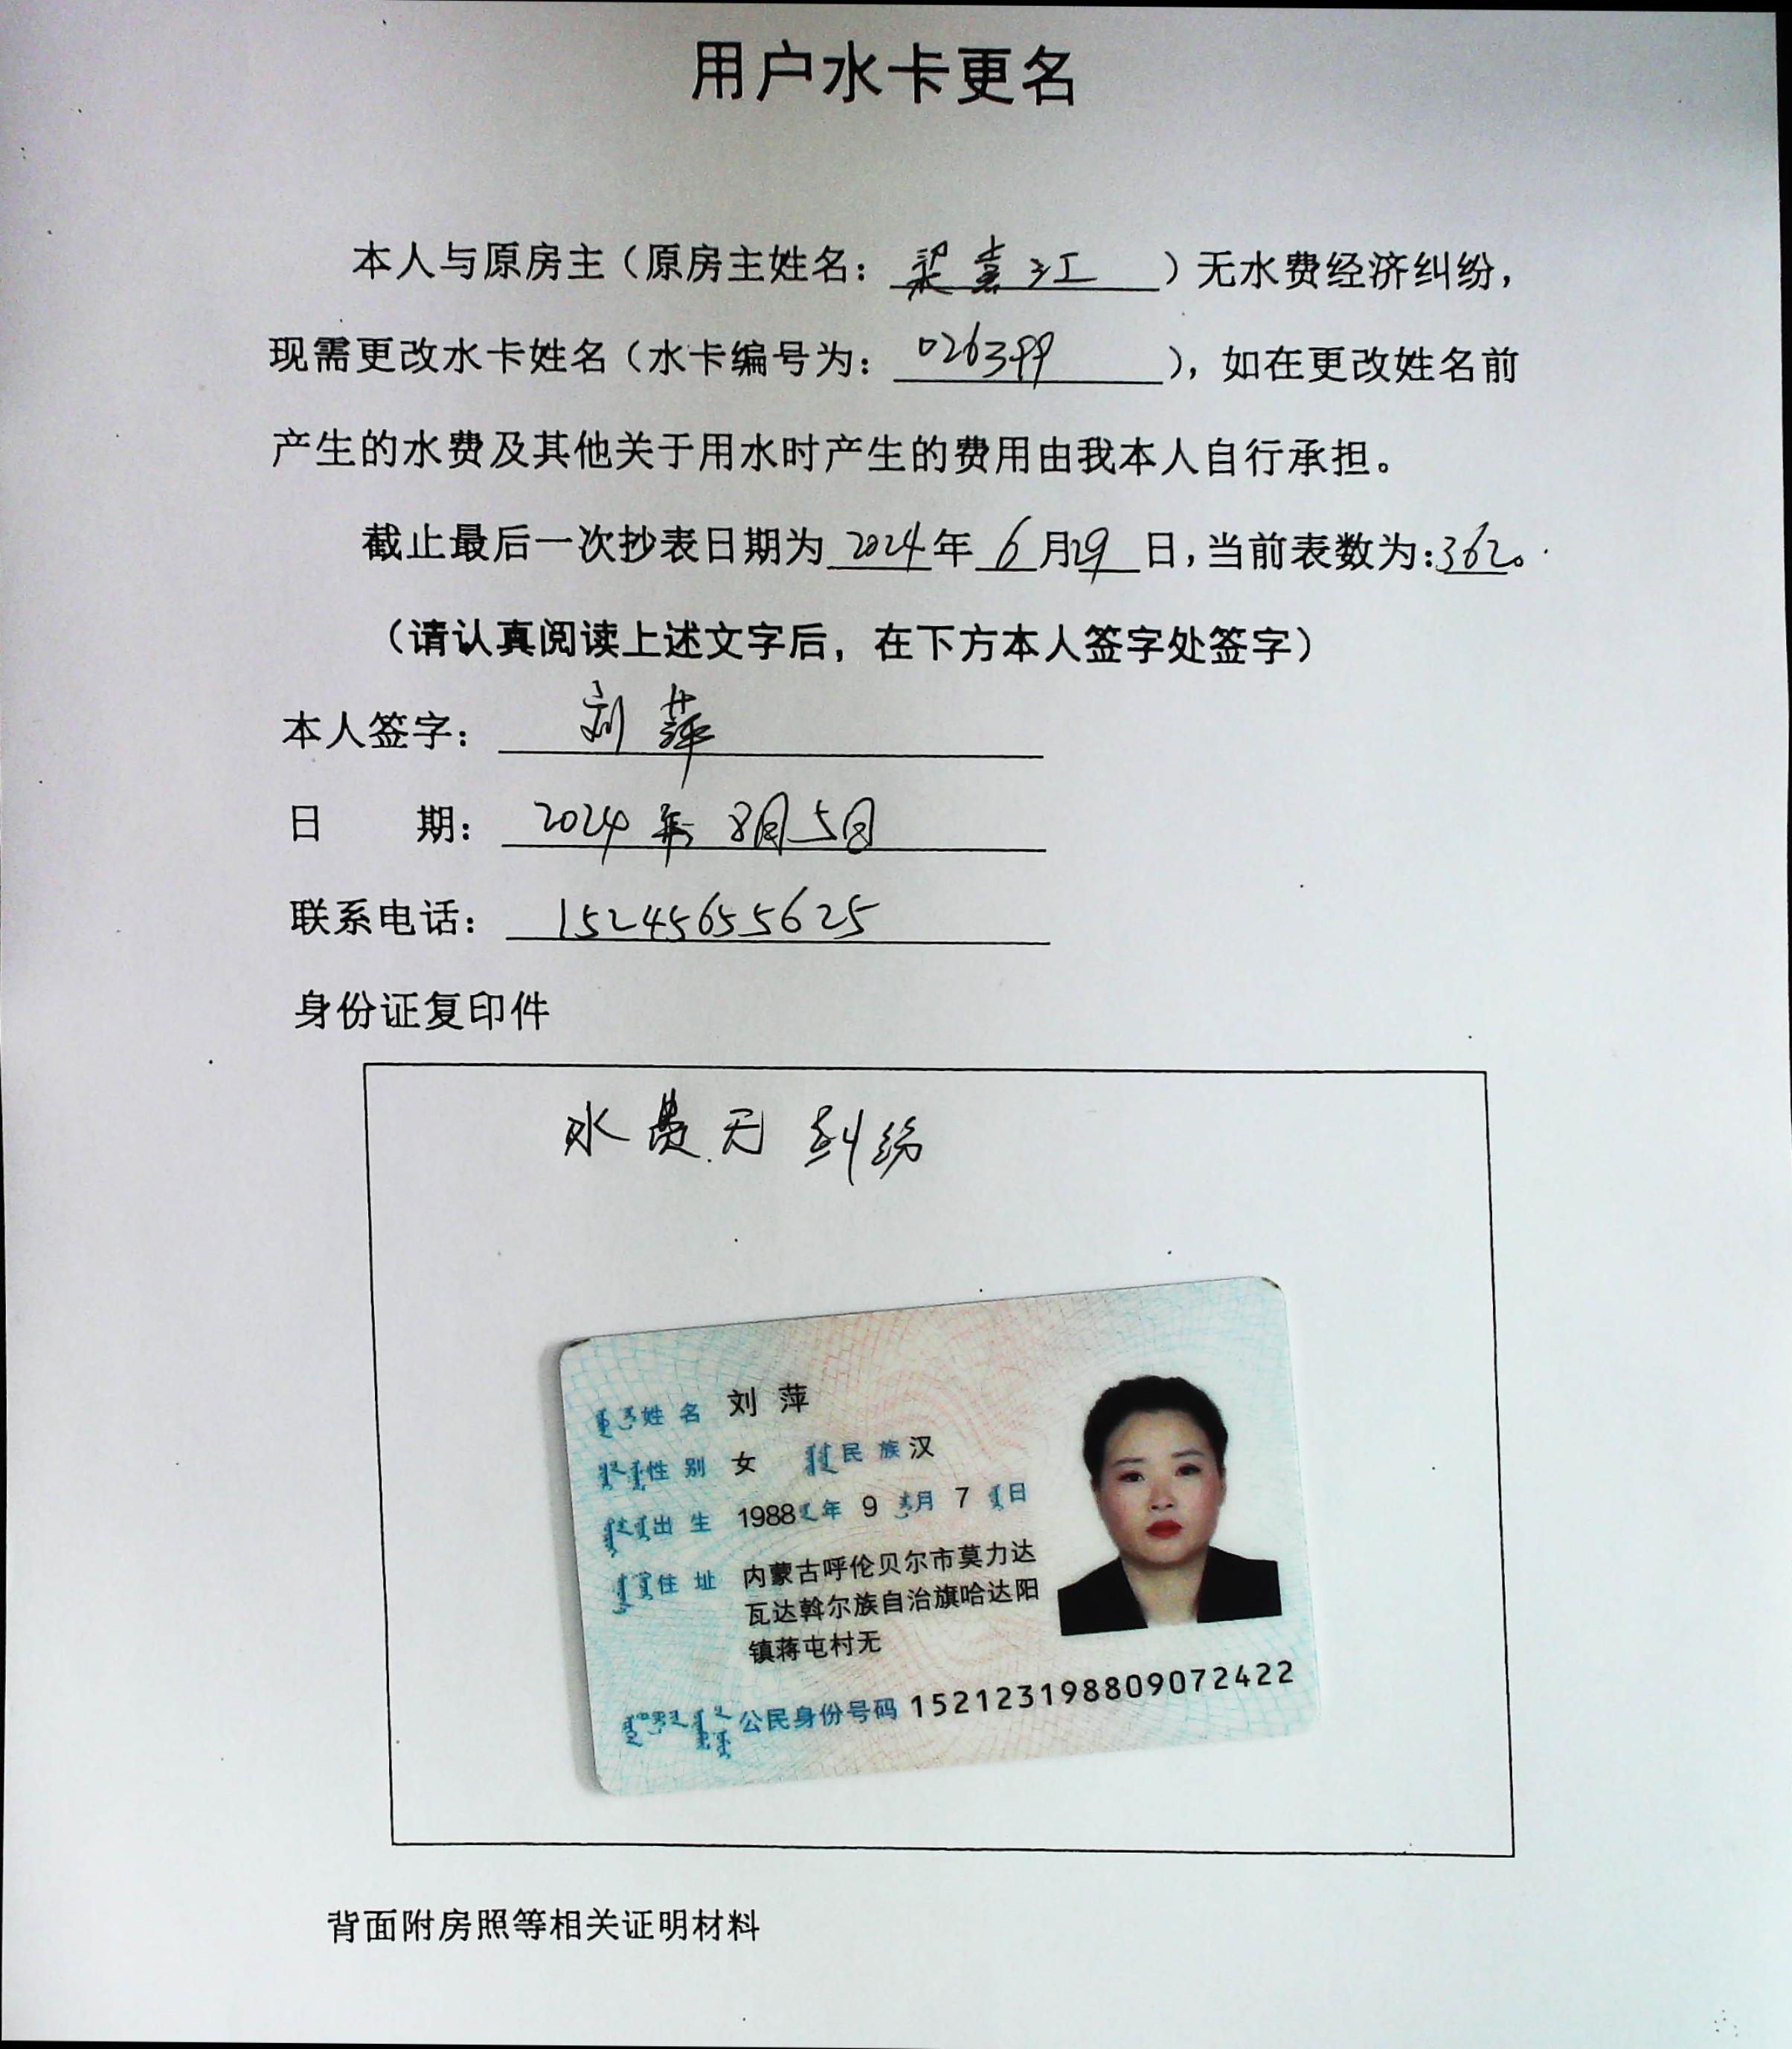 用户水卡更名
本人与原房主（原房主姓名：梁嘉江）无水费经济纠纷，
现需更改水卡姓名（水卡编号为：026399），如在更改姓名前
产生的水费及其他关于用水时产生的费用由我本人自行承担。
截止最后一次抄表日期为2024年6月29日，当前表数为：362。
（请认真阅读上述文字后，在下方本人签字处签字）
本人签字：刘萍
日期：2024年8月5日
联系电话：15245655625
身份证复印件
水费无纠纷
姓名 刘萍
性别 女 民族 汉
出生 1988年9月7日
住址 内蒙古呼伦贝尔市莫力达
瓦达斡尔族自治旗哈达阳
镇蒋屯村无
公民身份号码 152123198809072422
背面附房照等相关证明材料